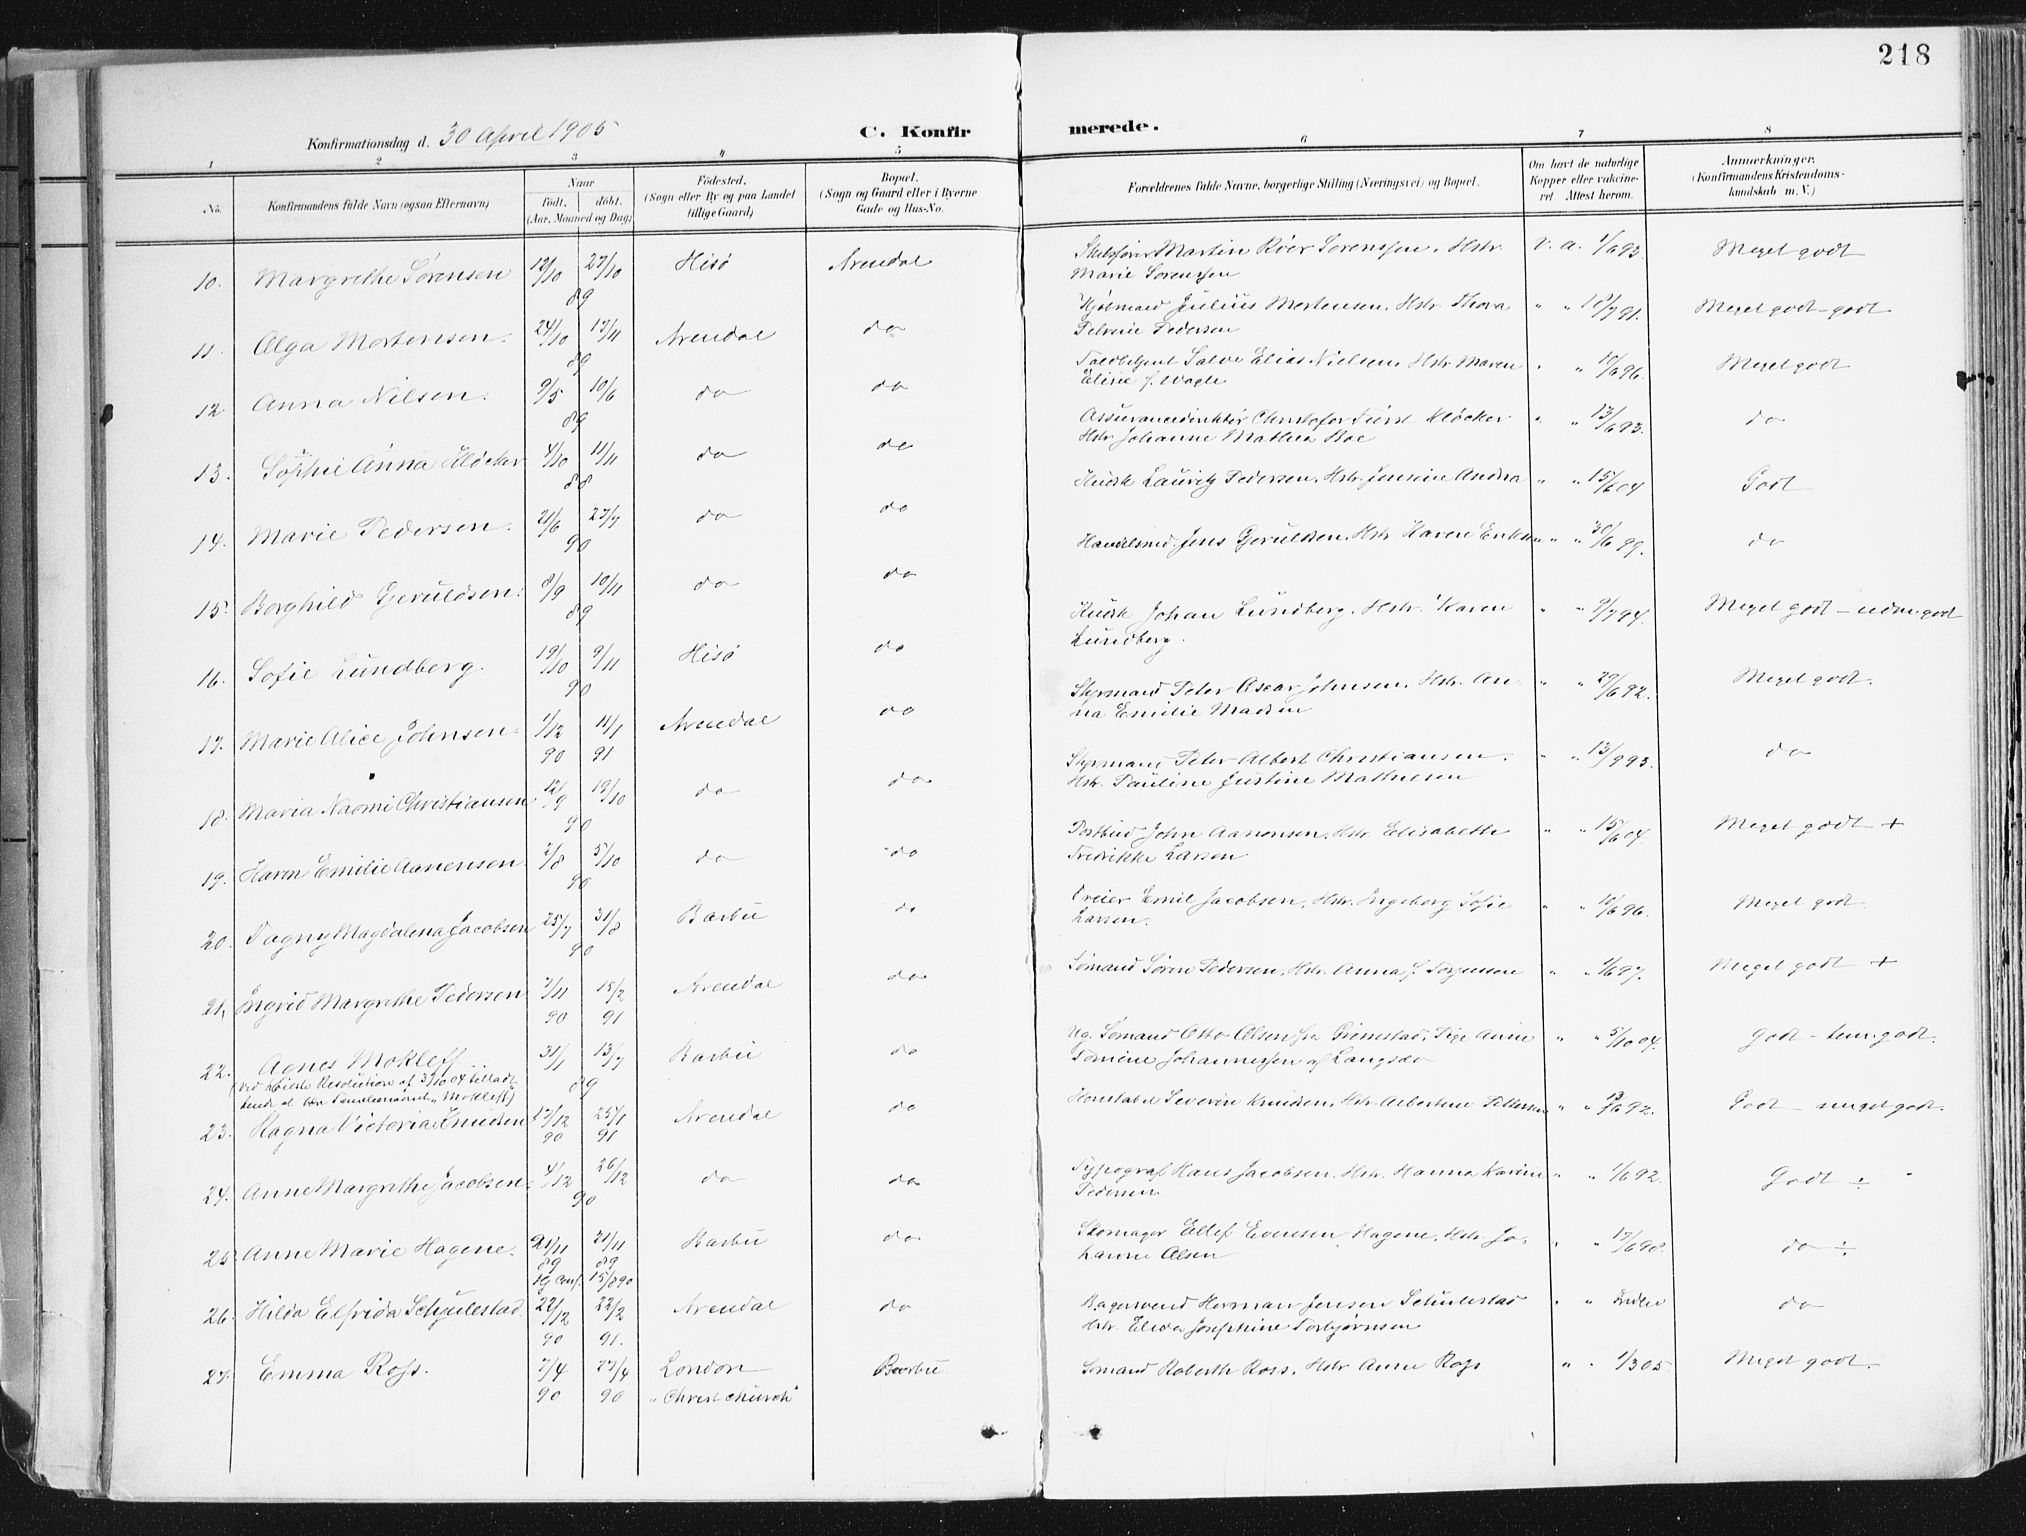 218
Konfirmationsdag d. 30 April 1905
C. Konfir
merede.
1 2 3 4 5 6 7 8
No.
Konfirmandens fulde Navn (ogsaa Efternavn)
Naar
født. døbt.
(Aar, Maaned og Dag)
Fødested.
(Sogn eller By og paa Landet
tillige Gaard)
Bopæl.
(Sogn og Gaard eller i Byerne
Gade og Hus-No.
Forældrenes fulde Navne, borgerlige Stilling (Næringsvei) og Bopæl.
Om havt de naturlige
Kopper eller vakcine-
ret Attest herom.
Anmærkninger.
(Konfirmandens Kristendoms-
kundskab m. V.)
10. Margrethe Sørensen 12/10 27/10 89 Hisø Arendal
Skibsfører Martin Røer Sørensen. Hstr. V. a. 1/6 93. Meget godt
Marie Sørenssen
11. Olga Mortensen. 24/10 17/11 89 Arendal do
Kjølmand Julius Mortensen. Hstr. Thora " " 18/7 91. Meget godt - godt
Pedersen
12. Anna Nilsen. 9/5 10/6 89 do do
Toldbetjent Salve Elias Nielsen, Hstr. Maren " " 10/6 96. Meget godt
Elisie f. Wagle
13. Sophie Anna Kløcker 4/10 11/11 88 do do
Assurancedirektør Christofer Fürst Kløcker " " 13/6 93. do
Hstr. Johanne Mathea Boe
14. Marie Pedersen. 21/6 27/7 90 do do
Kudsk Lauritz Pedersen, Hstr. Jensine Andrea " " 15/6 04 Godt
15. Borghild Gjeruldsen. 8/9 10/11 89 do do
Handelsmd. Jens Gjeruldsen. Hstr. Karen Eriksen " " 30/6 99. do
16. Sofie Lundberg. 19/10 9/11 90 Hisø do
Kudsk Johan Lundberg. Hstr. Karen " " 9/7 94. Meget godt - udm. godt
Lundberg.
17. Marie Alice Johnsen. 1/12 90 11/1 91 Arendal do
Styrmand Peter Oscar Johnsen, Hstr. An- " " 29/6 92. Meget godt.
na Emilie Madsen
18. Maria Naomi Christiansen 12/9 19/10 90 do do
Styrmand Peter Albert Christiansen. " " 13/9 93. do
Hstr. Pauline Justine Mathiesen
19. Karen Emilie Aanensen. 2/8 5/10 90 do do
Postbud John Aanensen, Hstr. Elisabette " " 15/6 04. Meget godt +
Fredrikke Larsen
20. Dagny Magdalena Jacobsen 25/7 31/8 90 Barbu do
Dreier Emil Jacobsen, Hstr. Ingeborg Sofie " " 10/6 96. Meget godt
Larsen.
21. Ingrid Margrethe Pedersen 7/11 90 15/2 91 Arendal do
Sømand Søren Pedersen, Hstr. Anna f. Torjussen " " 1/6 97. Meget godt +
22. Agnes Mokleff 31/1 13/7 89 Barbu do
(Ved høieste Resolution af 3/10 04 tilladt
hende at bære Familienavnet "Mokleff")
Ug. Sømand Otto Olsen fra Grimstad, Pige Anne " " 5/10 04. Godt - tem. godt.
Tomine Johannessen af Langsæv
23. Ragna Victoria Knudsen 17/12 90 25/1 91 Arendal do
Konstabel Severin Knudsen, Hstr. Albertine Tellefsen " " 13/6 92. Godt - meget godt.
24. Anne Margrethe Jacobsen. 4/12 26/12 90 do do
Typograf Hans Jacobsen. Hstr. Hanna Karine " " 1/6 92. Godt ÷
Pedersen
25. Anne Marie Hagene. 21/11 89 21/11 89 Barbu do
Hj conf. 15/8 90
Skomager Ellef Evensen Hagene, Hstr. Jo- " " 17/6 98. do ÷
hanne Olsen
26. Hilda Elfrida Schjulestad. 22/12 90 22/2 91. Arendal do
Bagersvend Herman Jensen Schulestad " " do
Hstr. Elida Josephine Torbjørnsen
27. Emma Ross. 7/4 90 27/4 90 London Barbu.
"Christ church"
Sømand Roberth Ross, Hstr. Anne Ross " " 1/3 05. Meget godt.